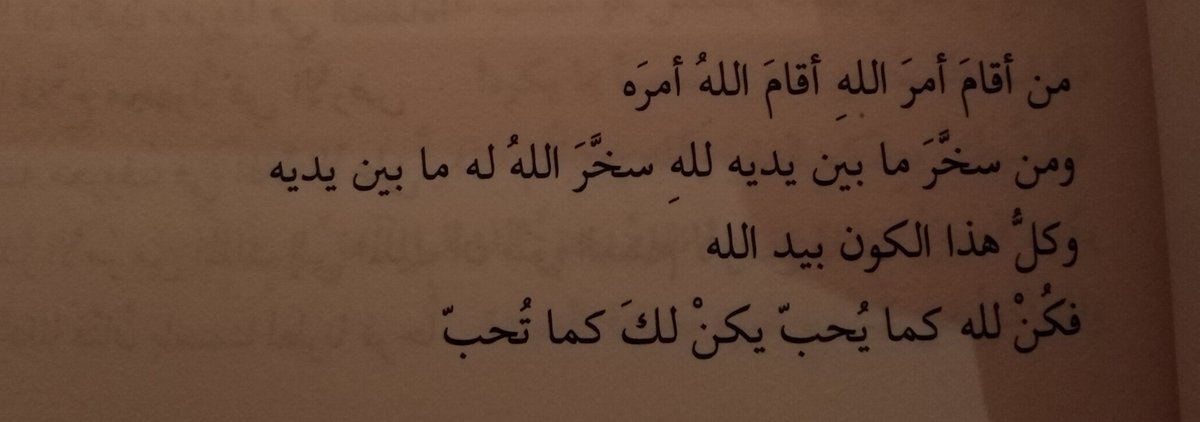 من أقامَ أمرَ اللهِ أقامَ اللهُ أمرَه
ومن سخَّرَ ما بين يديه للهِ سخَّرَ اللهُ له ما بين يديه
وكلُّ هذا الكون بيد الله
فكُنْ لله كما يُحبّ يكنْ لكَ كما تُحبّ